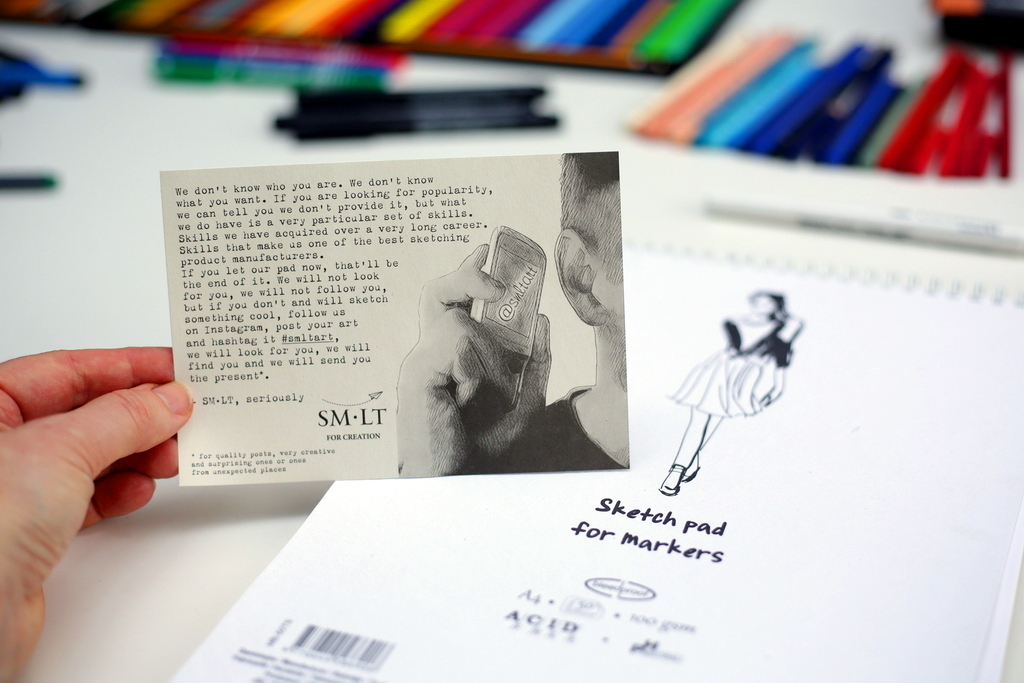 We don't know who you are. We don't know
what you want. If you are looking for popularity,
we can tell you we don't provide it, but what
we do have is a very particular set of skills.
Skills we have acquired over a very long career.
Skills that make us one of the best sketching
product manufacturers.
If you let our pad now, that'll be
the end of it. We will not look
for you, we will not follow you,
but if you don't and will sketch
something cool, follow us
on Instagram, post your art
and hashtag it #smltart,
we will look for you, we will
find you and we will send you
the present*.
- SM-LT, seriously
SM·LT
FOR CREATION
* for quality posts, very creative
and surprising ones or ones
from unexpected places
@smltart
Sketch pad
for markers
bleedproof
A4 • 50 • 100 gsm
ACID
FREE